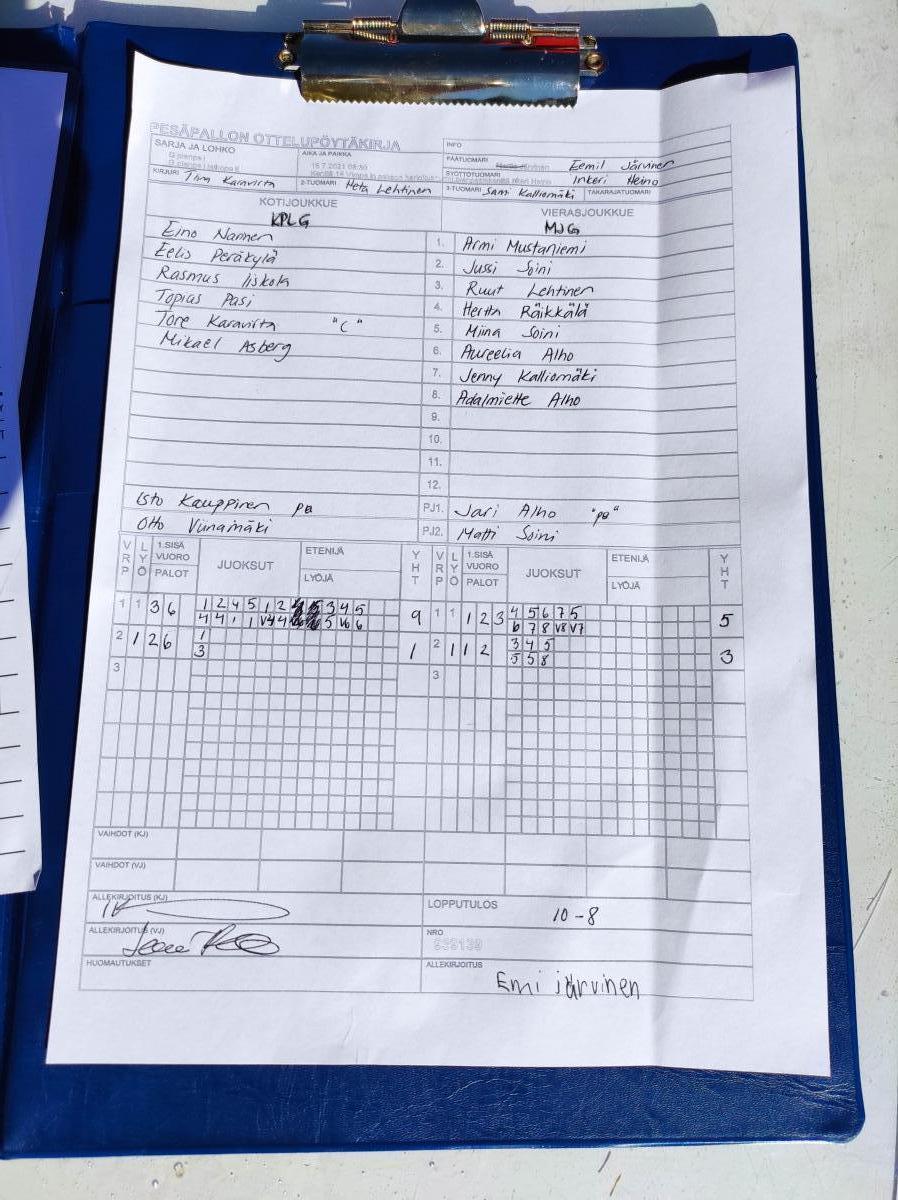 PESÄPALLON OTTELUPÖYTÄKIRJA
INFO
SARJA JA LOHKO
AIKA JA PAIKKA
PÄÄTUOMARI Eemil Järvinen
SYÖTTÖTUOMARI Inkeri Heino
KIRJURI Timo Karavirta 2-TUOMARI Heta Lehtinen 3-TUOMARI Sami Kalliomäki TAKARAJATUOMARI
KOTIJOUKKUE VIERASJOUKKUE
KPLG MJG
Eino Nannen 1. Armi Mustaniemi
Eelis Peräkylä 2. Jussi Soini
Rasmus Iiskola 3. Ruut Lehtinen
Topias Pasi 4. Hertta Räikkälä
Tore Karavirta "C" 5. Miina Soini
Mikael Asberg 6. Aureelia Alho
7. Jenny Kalliomäki
8. Adalmiette Alho
9.
10.
11.
12.
Isto Kauppinen PJ1. Jari Alho "po"
Otto Viinamäki PJ2. Matti Soini
VRP LYÖ 1.SISÄ VUORO PALOT JUOKSUT ETENIJÄ LYÖJÄ YHT VRP LYÖ 1.SISÄ VUORO PALOT JUOKSUT ETENIJÄ LYÖJÄ YHT
1 1 3 6 1 2 4 5 1 2 3 4 5 9 1 1 1 2 3 4 5 6 7 5 5
4 4 1 1 V4 4 5 V6 6 6 7 8 V8 V7
2 1 2 6 1 1 2 1 1 2 3 4 5 3
3 5 5 8
3 3
VAIHDOT (KJ)
VAIHDOT (VJ)
ALLEKIRJOITUS (KJ) LOPPUTULOS 10-8
ALLEKIRJOITUS (VJ) NRO
HUOMAUTUKSET ALLEKIRJOITUS
Emi järvinen